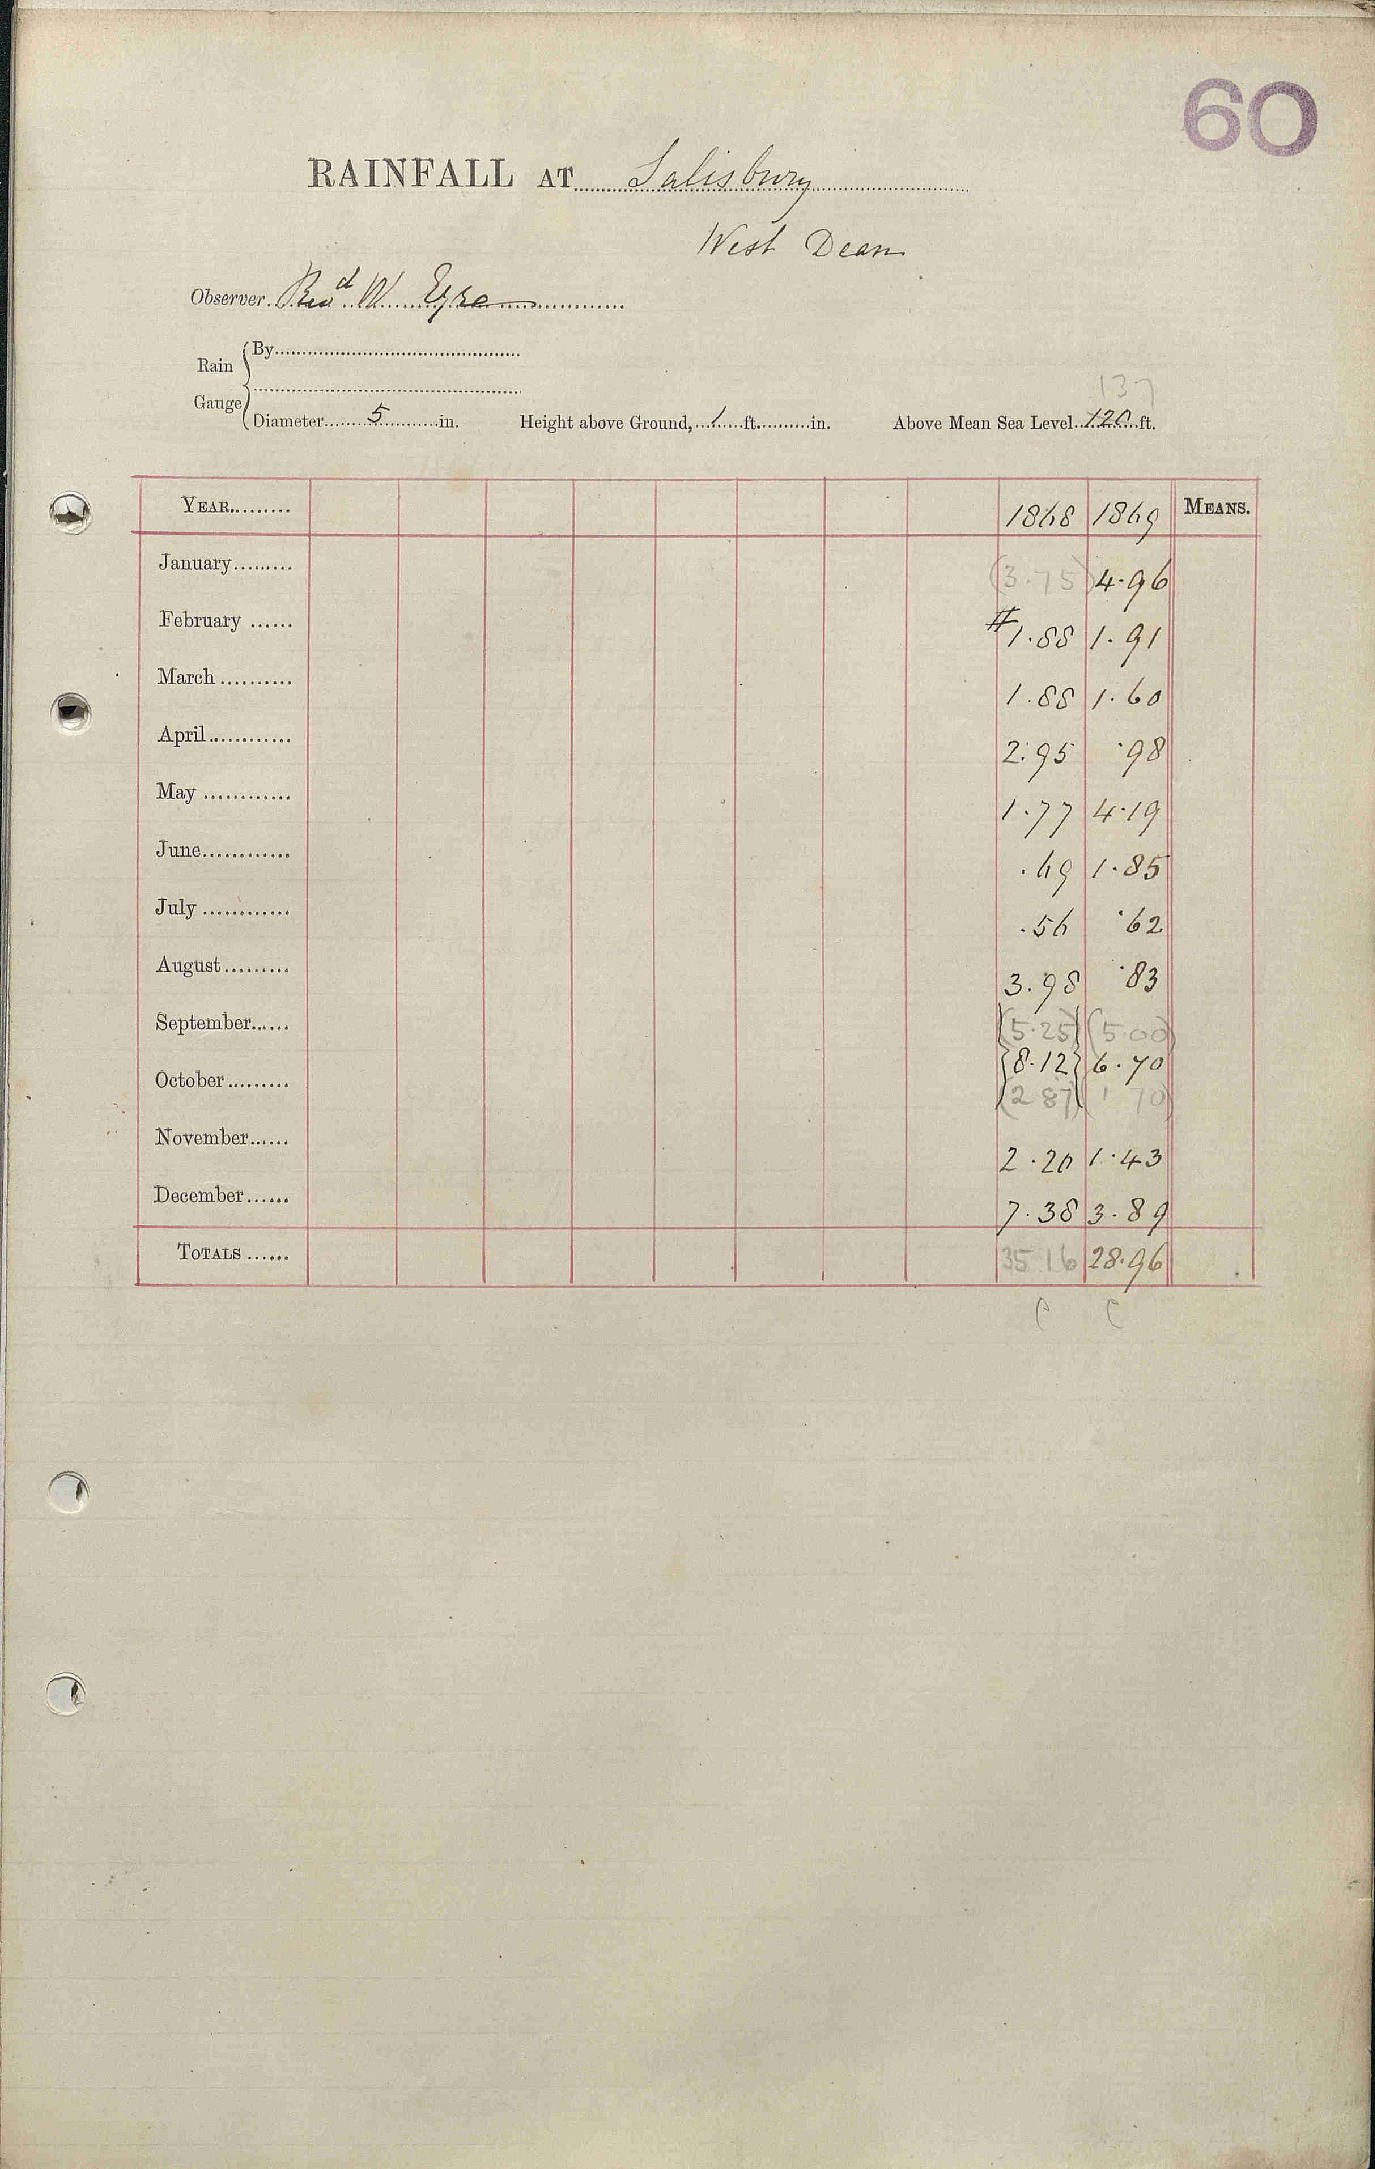 60
RAINFALL AT Salisbury
West Dean
Observer Revd W. Eyre
Rain Gauge
By
137
Diameter 5 in. Height above Ground, 1 ft. in. Above Mean Sea Level 120 ft.
YEAR 1868 1869 MEANS.
January (3.75) 4.96
February #1.88 1.91
March 1.88 1.60
April 2.95 .98
May 1.77 4.19
June .49 1.85
July .56 .62
August 3.98 .83
September (5.25) (5.00)
{8.12} 6.70
October (2 87) (1 70)
November 2.20 1.43
December 7.38 3.89
TOTALS 35 16 28.96
C C